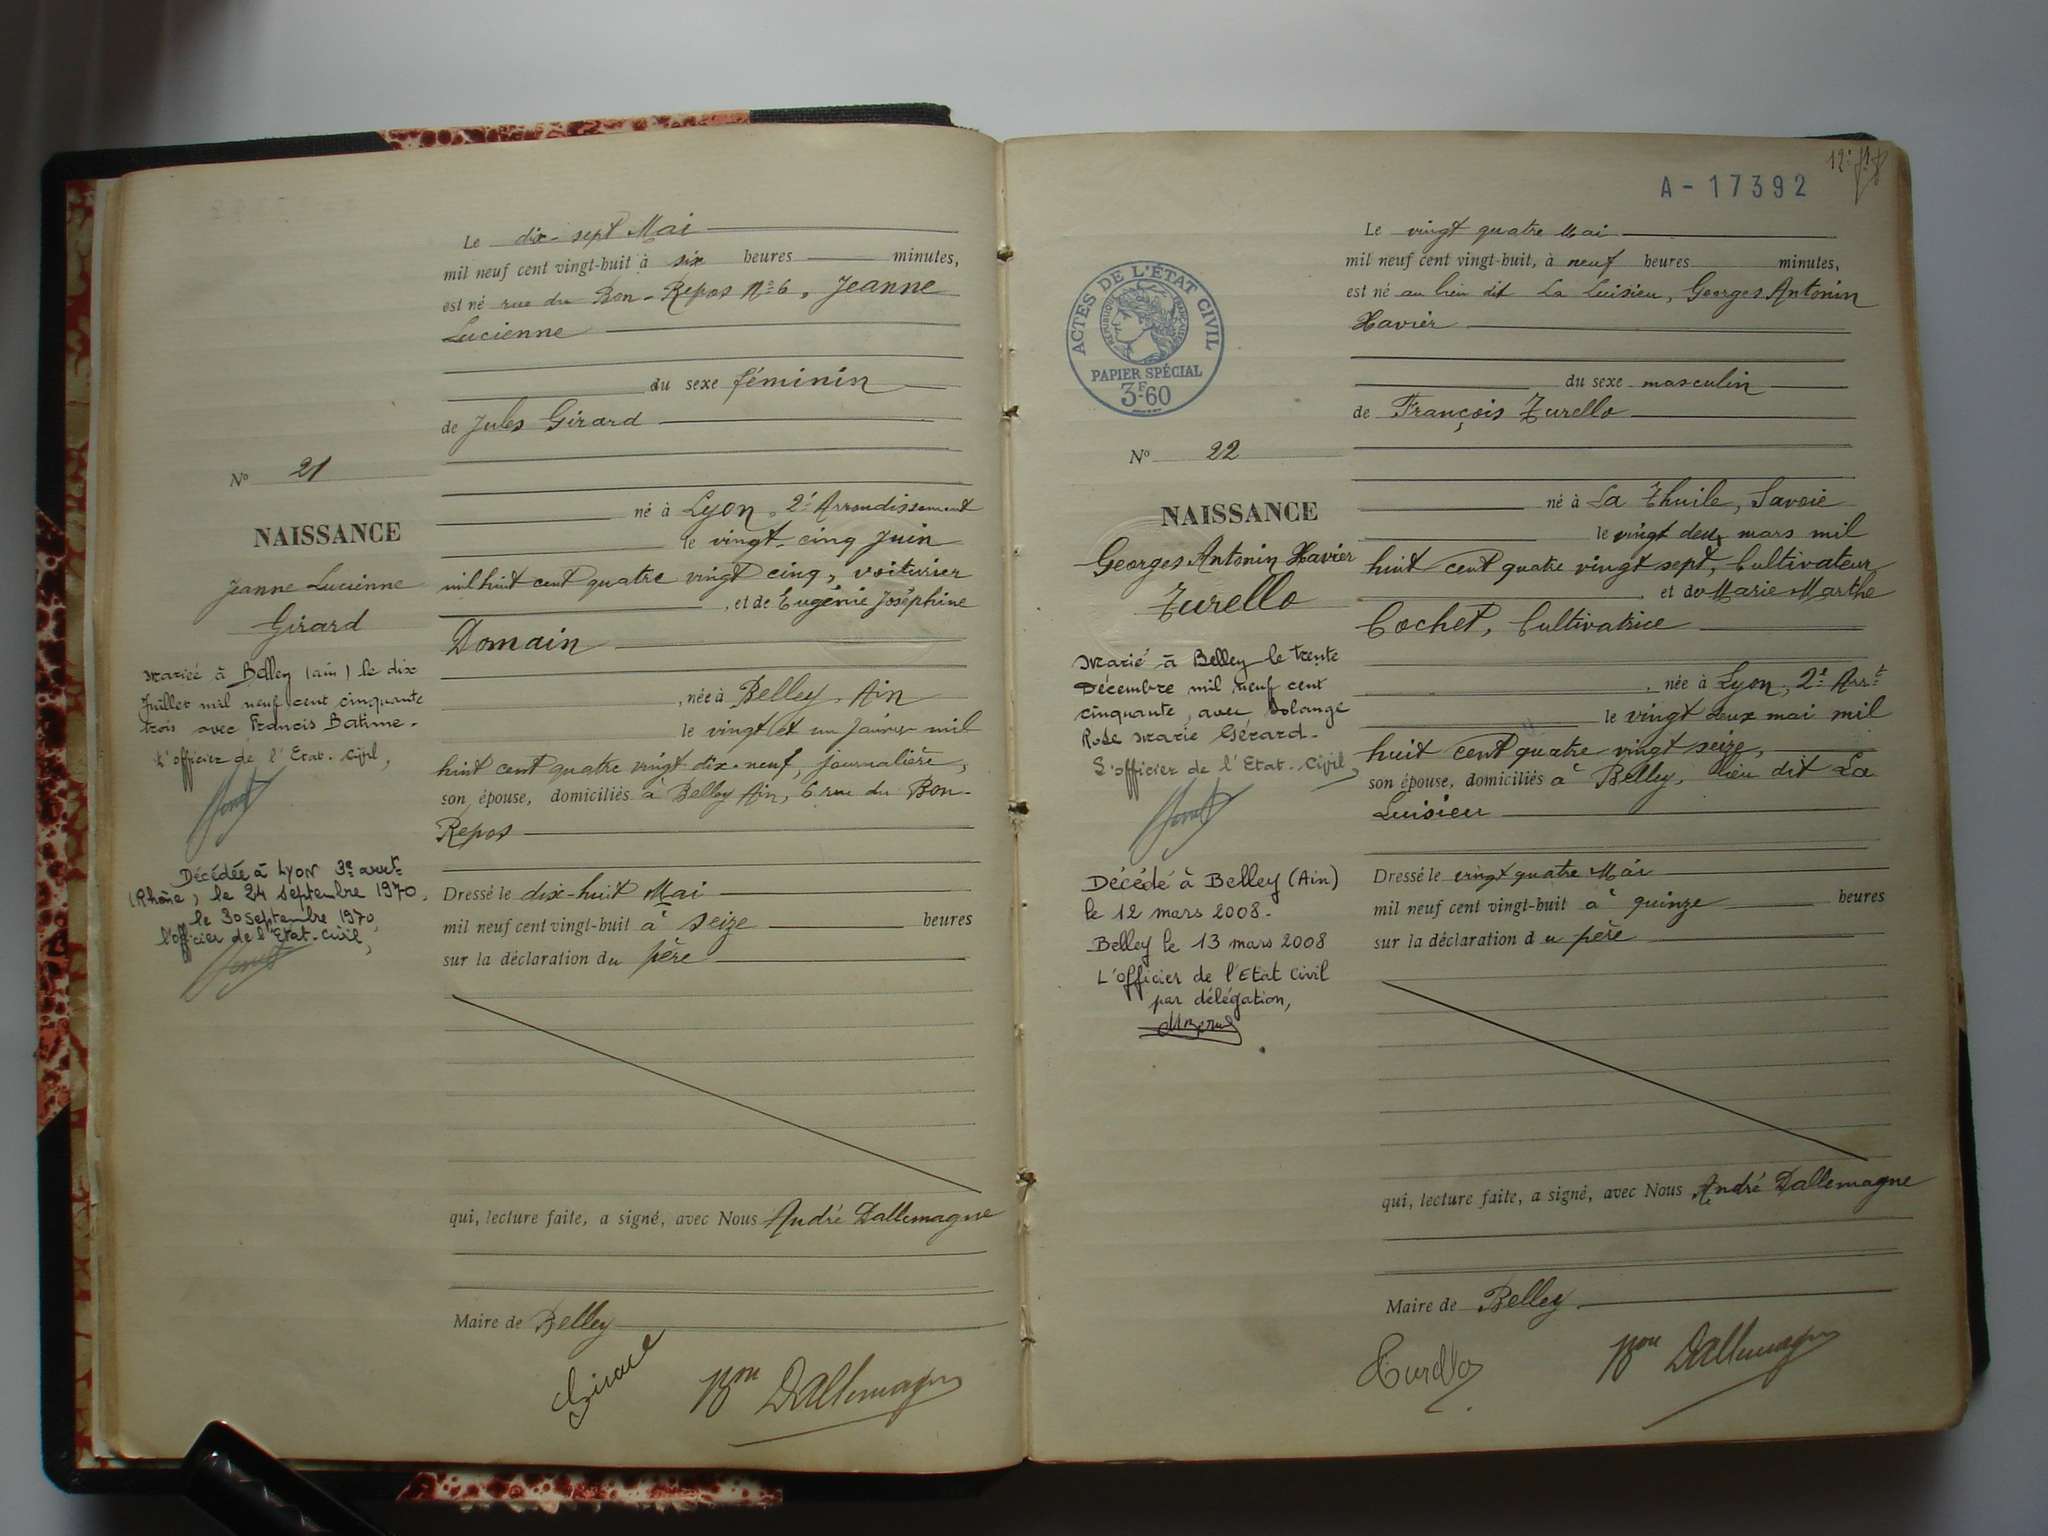 Le dix-sept Mai
mil neuf cent vingt-huit à six heures minutes,
est né rue du Bon-Repos No 6, Jeanne
Lucienne
du sexe féminin
de Jules Girard
No 21
né à Lyon, 2e Arrondissement
NAISSANCE
le vingt-cinq Juin
Jeanne Lucienne
mil huit cent quatre vingt cinq, voiturier
, et de Eugénie Joséphine
Girard
Domain
Mariée à Belley (Ain) le dix
Juillet mil neuf cent cinquante
trois avec Francis Batime.
L'officier de l'Etat-Civil,
, née à Belley, Ain
le vingt et un Janvier mil
huit cent quatre vingt dix-neuf, journalière,
son épouse, domiciliés à Belley Ain, 6 rue du Bon-
Repos
Décédée à Lyon 3e arrt
(Rhône), le 24 septembre 1970.
le 30 septembre 1970,
l'officier de l'Etat-Civil,
Dressé le dix-huit Mai
mil neuf cent vingt-huit à seize heures
sur la déclaration du père
qui, lecture faite, a signé, avec Nous André Dallemagne
Maire de Belley
Girard
Bon Dallemagne
A-17392
Le vingt quatre Mai
mil neuf cent vingt-huit, à neuf heures minutes,
est né au lieu dit La Luisieu, Georges Antonin
Xavier
ACTES DE L'ÉTAT CIVIL
RÉPUBLIQUE FRANÇAISE
PAPIER SPÉCIAL
3F60
du sexe masculin
de François Turello
No 22
né à La Thuile, Savoie
NAISSANCE
le vingt deux mars mil
Georges Antonin Xavier
huit cent quatre vingt sept, Cultivateur
Turello
et de Marie Marthe
Cochet, Cultivatrice
Marié à Belley le trente
Décembre mil neuf cent
cinquante, avec Solange
Rose Marie Gérard.
L'officier de l'Etat-Civil,
, née à Lyon, 2e Arrt
le vingt deux mai mil
huit cent quatre vingt seize,
son épouse, domiciliés à Belley, lieu dit La
Luisieu
Décédé à Belley (Ain)
le 12 mars 2008.
Belley le 13 mars 2008
L'Officier de l'Etat Civil
par délégation,
Dressé le vingt quatre Mai
mil neuf cent vingt-huit à quinze heures
sur la déclaration du père
qui, lecture faite, a signé, avec Nous André Dallemagne
Maire de Belley
Turello
Bon Dallemagne